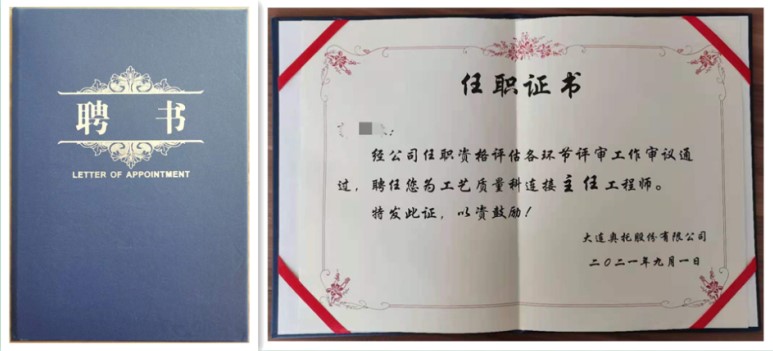 聘 书
LETTER OF APPOINTMENT
任职证书
:
经公司任职资格评估各环节评审工作审议通
过，聘任您为工艺质量科连接主任工程师。
特发此证，以资鼓励！
大连奥托股份有限公司
二〇二一年九月一日